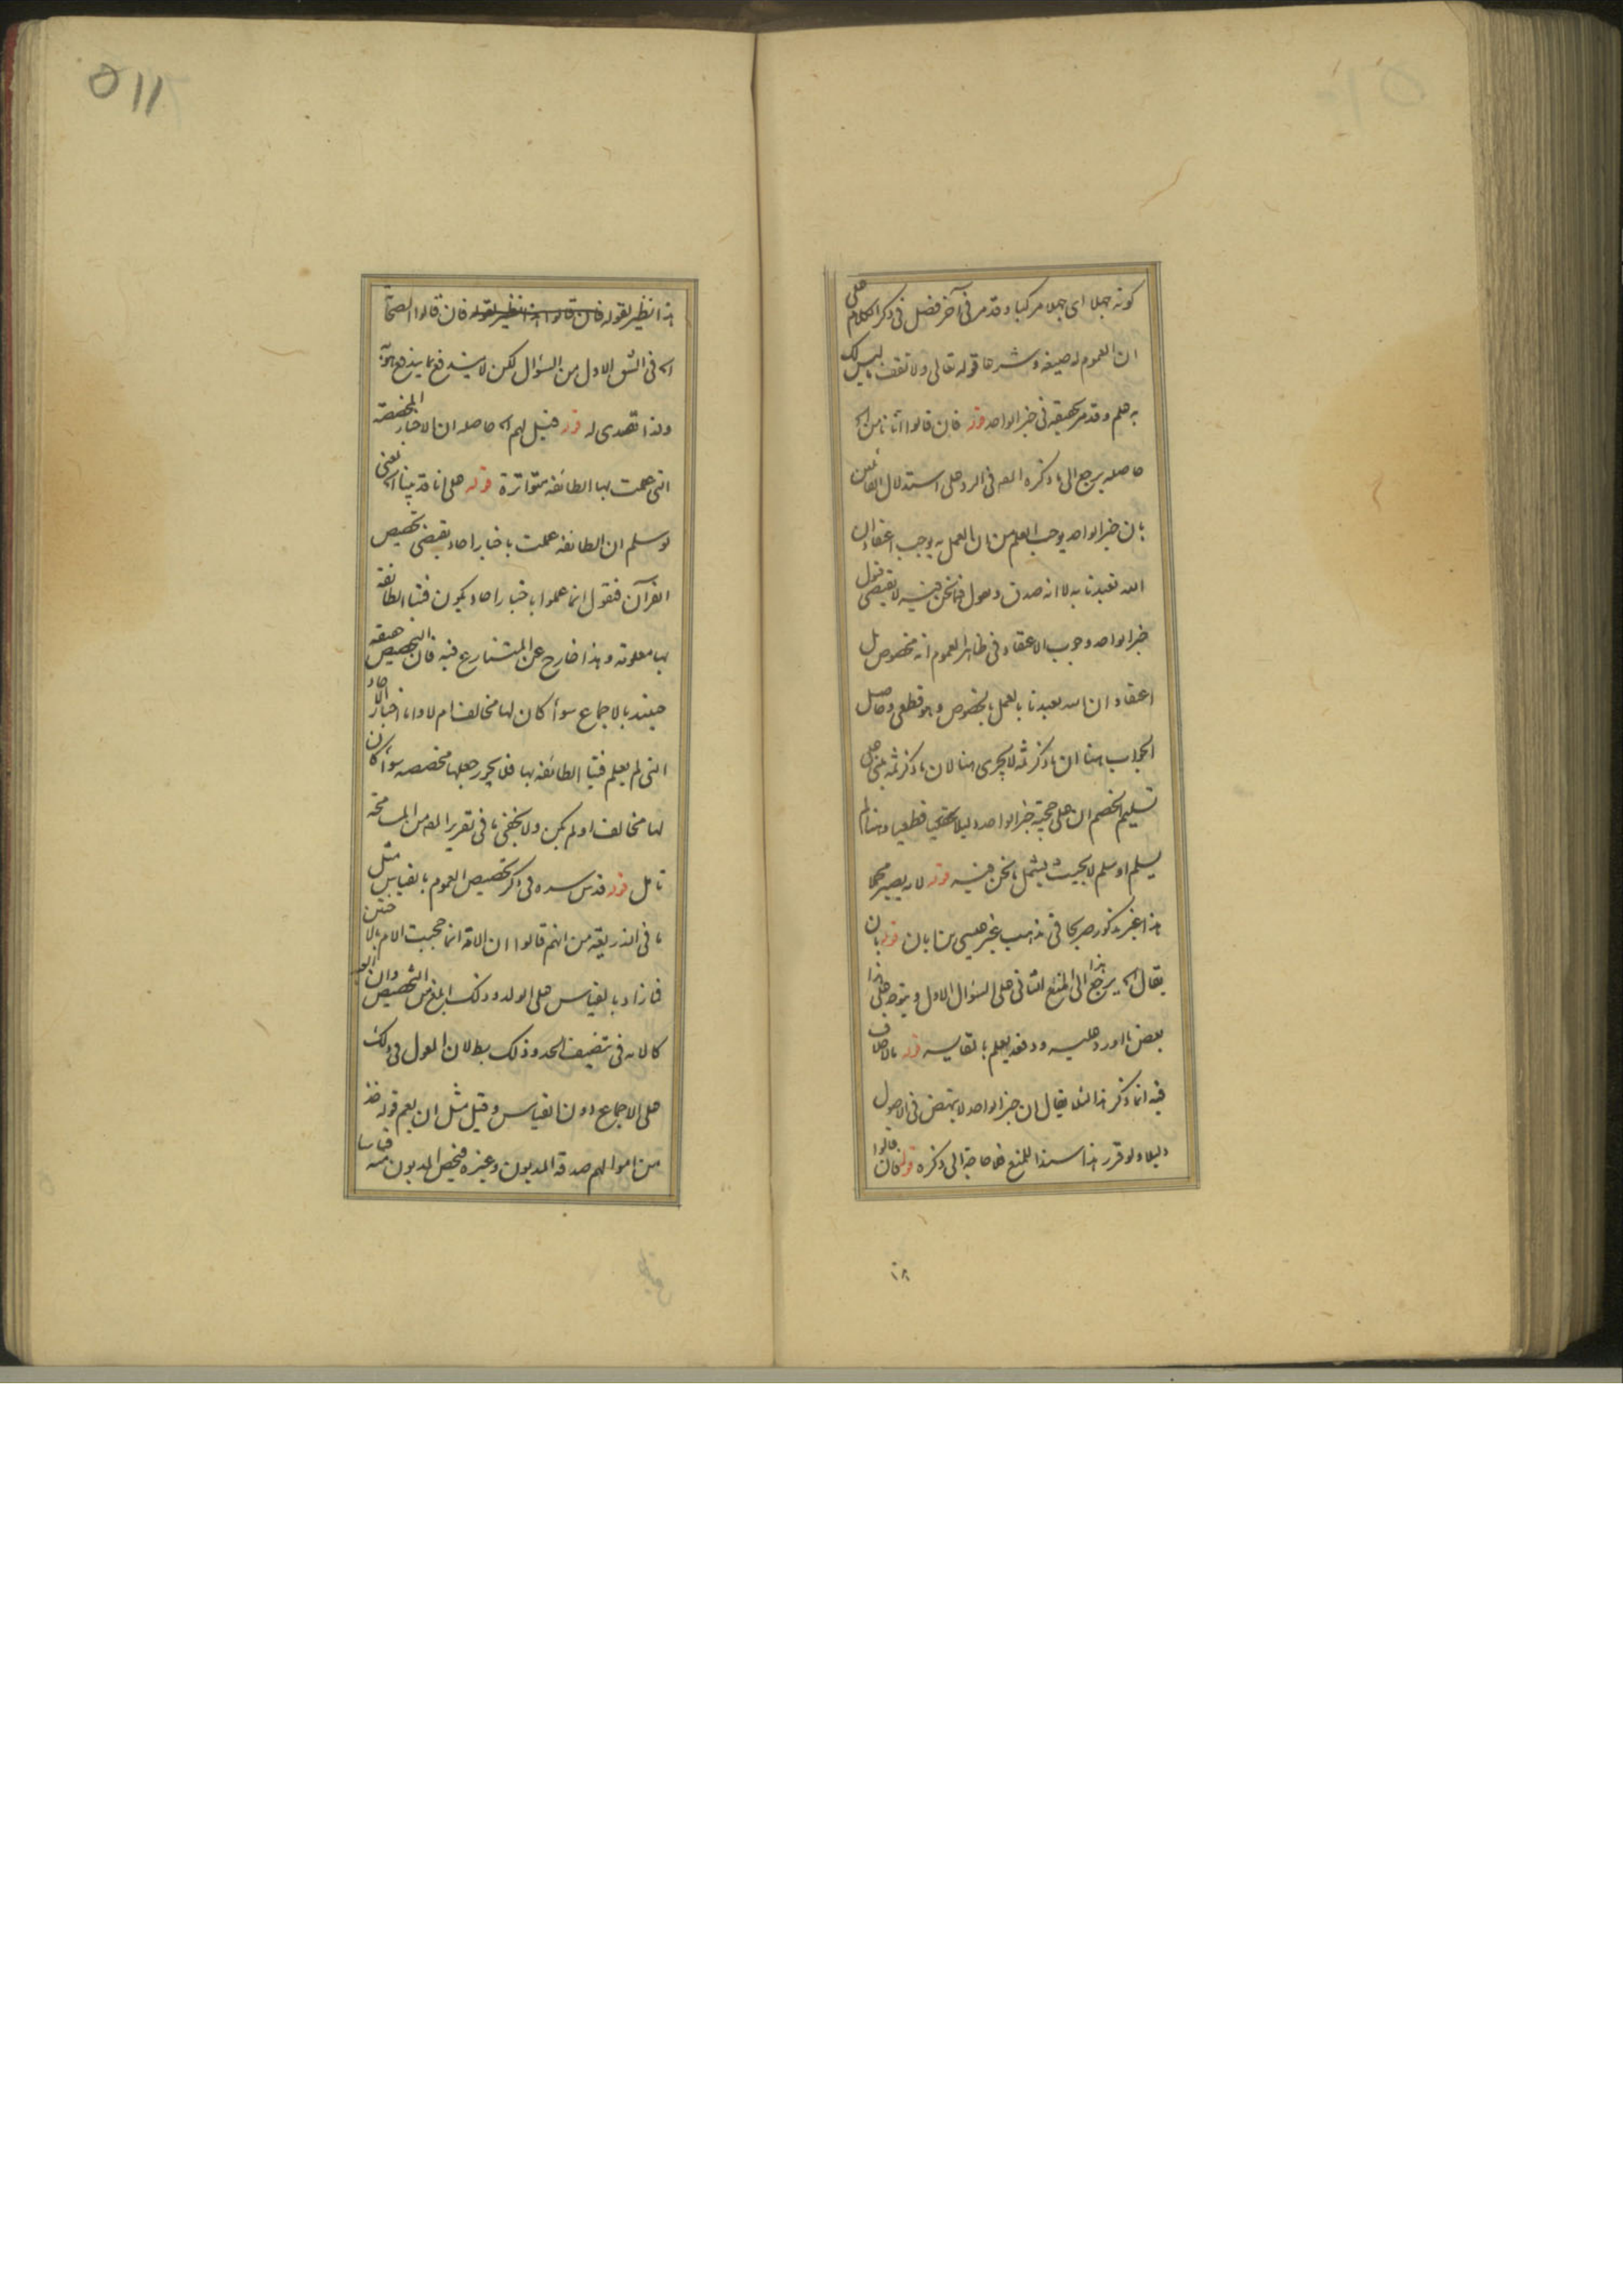 كونه جهلا اى جهلا مركبا وقد مر فى آخر فصل فى ذكر الكلام على
ان العموم له صيغة وشرعا قوله تعالى ولا تقف ما ليس لك
به علم وقد مر تحقيقه فى خبر الواحد قوله فان قالوا
حاصله يرجع الى ما ذكره المص فى الرد على استدلال القائلين
بان خبر الواحد يوجب العلم من ان العمل به يوجب اعتقاد ان
الله تعبدنا به لا انه صدق فما نحن فيه لا يقتضى قبول
خبر الواحد وجوب الاعتقاد فى ظاهر العموم انه مخصوص بل
اعتقاد ان الله تعبدنا بالعمل بالخصوص وهو قطعى وحاصل
الجواب هنا ان ما ذكر ثمه لا يجرى هنا لان ما ذكر ثمه مبنى على
تسليم الخصم ان على حجية خبر الواحد دليلا قطعيا وهنا لم
يسلم او سلم لا بحيث يشمل ما نحن فيه قوله لانه يصير مجملا
هذا غير مذكور صريحا فى مذهب غير عيسى بن ابان قوله بان
يقال الخ يرجع هذا الى المنع الثانى على السؤال الاول ويتوجه على هذا
بعض ما اورد عليه ودفعه يعلم بالمقايسه قوله بلا خلاف
فيه انما ذكر هذا لئلا يقال ان خبر الواحد لا ينتهض فى الاصول
دليلا ولو قرر هذا سندا للمنع فلا حاجة الى ذكره قوله فان قالوا
١٨
٥١١
هذا نظير لقوله فان قالوا هذا نظير لقوله فان قالوا الصحابة
الخ فى الشق الاول من السؤال لكن لا يندفع بما يندفع
ولذا تصدى له قوله قيل لهم الخ حاصله ان الاخبار المخصصة
التى عملت بها الطائفة متواترة قوله على انا قد بينا الخ يعنى
لو سلم ان الطائفة عملت باخبار احاد يقتضى تخصيص
القرآن فنقول انما عملوا باخبار احاد يكون فتيا الطائفة
بها معلومة وهذا خارج عن المتنازع فيه فان التخصيص حقيقة
حينئذ بالاجماع سوآء كان لها مخالف ام لا واما اخبار الاحاد
التى لم يعلم فتيا الطائفة بها فلا يجوز جعلها مخصصه سوآء كان
لها مخالف او لم يكن ولا يخفى ما فى تقرير المص من المسامحة
تامل قوله قدس سره فى ذكر تخصيص العموم بالقياس مثل
ما فى الذريعة من انهم قالوا ان الامة انما حجبت الام بالاختين
فما زاد بالقياس على الولد وذلك ابلغ من التخصيص وان العبد
كالامة فى تنصيف الحد وذلك بطلان المعول فى ذلك
على الاجماع دون القياس وقيل مثل ان يعم قوله خذ
من اموالهم صدقة المديون وغيره فيخص المديون منه قياسا